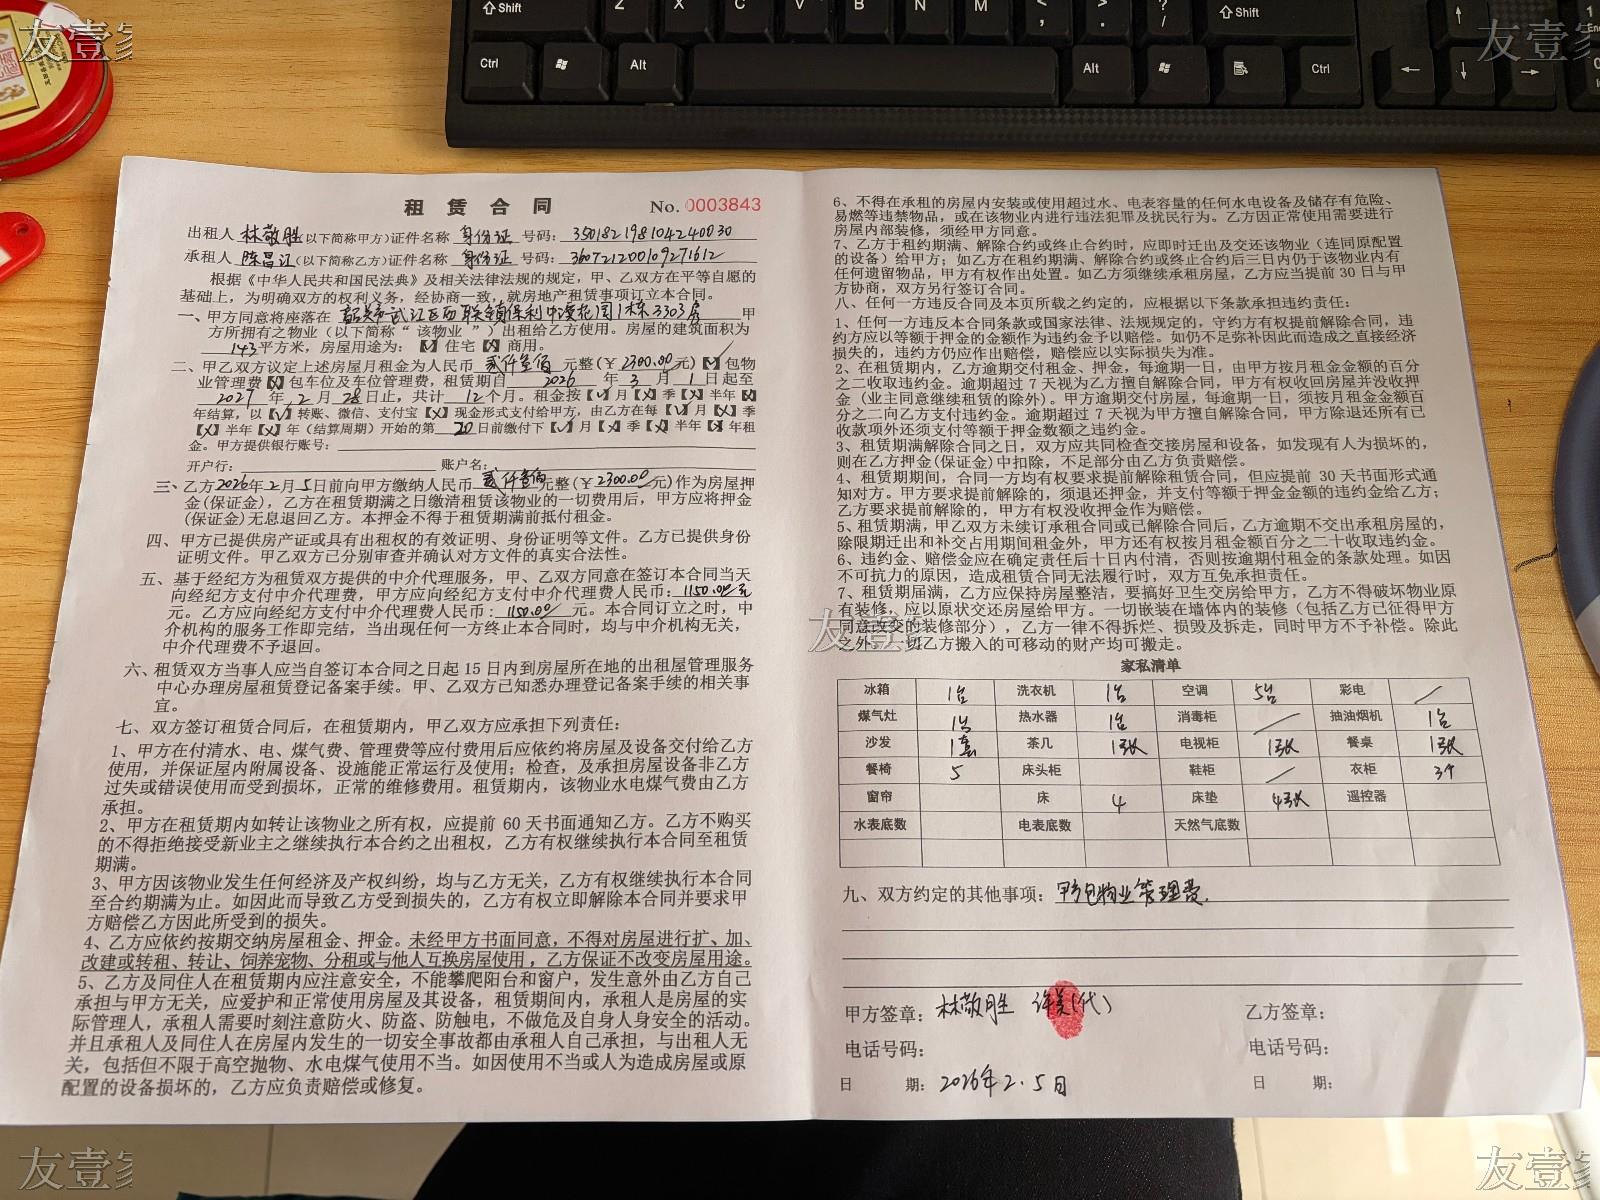 友壹家
友壹家
Shift Z X C V B N M < , > . ? / Shift
Ctrl Alt Alt Ctrl
租赁合同 No. 0003843
出租人 林敬胜 (以下简称甲方)证件名称 身份证 号码: 350182198104240030
承租人 陈昌江 (以下简称乙方)证件名称 身份证 号码:
根据《中华人民共和国民法典》及相关法律法规的规定，甲、乙双方在平等自愿的
基础上，为明确双方的权利义务，经协商一致，就房地产租赁事项订立本合同。
一、甲方同意将座落在 韶关市武江区西联镇保利中溪花园1栋3303房 甲
方所拥有之物业（以下简称“该物业”）出租给乙方使用。房屋的建筑面积为
143平方米，房屋用途为：【√】住宅【X】商用。
二、甲乙双方议定上述房屋月租金为人民币 贰仟叁佰 元整(￥2300.00元)【√】包物
业管理费【X】包车位及车位管理费，租赁期自 2026 年 3 月 1 日起至
2027 年 2 月 28 日止，共计 12 个月。租金按【√】月【X】季【X】半年【X】
年结算，以【√】转账、微信、支付宝【X】现金形式支付给甲方，由乙方在每【√】月【X】季
【X】半年【X】年（结算周期）开始的第 20 日前缴付下【√】月【X】季【X】半年【X】年租
金。甲方提供银行账号：
开户行： 账户名：
三、乙方2026年2月5日前向甲方缴纳人民币 贰仟叁佰元整(￥2300.00元)作为房屋押
金(保证金)，乙方在租赁期满之日缴清租赁该物业的一切费用后，甲方应将押金
(保证金)无息退回乙方。本押金不得于租赁期满前抵付租金。
四、甲方已提供房产证或具有出租权的有效证明、身份证明等文件。乙方已提供身份
证明文件。甲乙双方已分别审查并确认对方文件的真实合法性。
五、基于经纪方为租赁双方提供的中介代理服务，甲、乙双方同意在签订本合同当天
向经纪方支付中介代理费，甲方应向经纪方支付中介代理费人民币：1150.00元
元。乙方应向经纪方支付中介代理费人民币：1150.00 元。本合同订立之时，中
介机构的服务工作即完结，当出现任何一方终止本合同时，均与中介机构无关，
中介代理费不予退回。
六、租赁双方当事人应当自签订本合同之日起 15 日内到房屋所在地的出租屋管理服务
中心办理房屋租赁登记备案手续。甲、乙双方已知悉办理登记备案手续的相关事
宜。
七、双方签订租赁合同后，在租赁期内，甲乙双方应承担下列责任：
1、甲方在付清水、电、煤气费、管理费等应付费用后应依约将房屋及设备交付给乙方
使用，并保证屋内附属设备、设施能正常运行及使用；检查，及承担房屋设备非乙方
过失或错误使用而受到损坏，正常的维修费用。租赁期内，该物业水电煤气费由乙方
承担。
2、甲方在租赁期内如转让该物业之所有权，应提前 60 天书面通知乙方。乙方不购买
的不得拒绝接受新业主之继续执行本合约之出租权，乙方有权继续执行本合同至租赁
期满。
3、甲方因该物业发生任何经济及产权纠纷，均与乙方无关，乙方有权继续执行本合同
至合约期满为止。如因此而导致乙方受到损失的，乙方有权立即解除本合同并要求甲
方赔偿乙方因此所受到的损失。
4、乙方应依约按期交纳房屋租金、押金。未经甲方书面同意，不得对房屋进行扩、加、
改建或转租、转让、饲养宠物、分租或与他人互换房屋使用，乙方保证不改变房屋用途。
5、乙方及同住人在租赁期内应注意安全，不能攀爬阳台和窗户，发生意外由乙方自己
承担与甲方无关，应爱护和正常使用房屋及其设备，租赁期间内，承租人是房屋的实
际管理人，承租人需要时刻注意防火、防盗、防触电，不做危及自身人身安全的活动。
并且承租人及同住人在房屋内发生的一切安全事故都由承租人自己承担，与出租人无
关，包括但不限于高空抛物、水电煤气使用不当。如因使用不当或人为造成房屋或原
配置的设备损坏的，乙方应负责赔偿或修复。
6、不得在承租的房屋内安装或使用超过水、电表容量的任何水电设备及储存有危险、
易燃等违禁物品，或在该物业内进行违法犯罪及扰民行为。乙方因正常使用需要进行
房屋内部装修，须经甲方同意。
7、乙方于租约期满、解除合约或终止合约时，应即时迁出及交还该物业（连同原配置
的设备）给甲方；如乙方在租约期满、解除合约或终止合约后三日内仍于该物业内有
任何遗留物品，甲方有权作出处置。如乙方须继续承租房屋，乙方应当提前 30 日与甲
方协商，双方另行签订合同。
八、任何一方违反合同及本页所载之约定的，应根据以下条款承担违约责任：
1、任何一方违反本合同条款或国家法律、法规规定的，守约方有权提前解除合同，违
约方应以等额于押金的金额作为违约金予以赔偿。如仍不足弥补因此而造成之直接经济
损失的，违约方仍应作出赔偿，赔偿应以实际损失为准。
2、在租赁期内，乙方逾期交付租金、押金，每逾期一日，由甲方按月租金金额的百分
之二收取违约金。逾期超过 7 天视为乙方擅自解除合同，甲方有权收回房屋并没收押
金（业主同意继续租赁的除外）。甲方逾期交付房屋，每逾期一日，须按月租金金额百
分之二向乙方支付违约金。逾期超过 7 天视为甲方擅自解除合同，甲方除退还所有已
收款项外还须支付等额于押金数额之违约金。
3、租赁期满解除合同之日，双方应共同检查交接房屋和设备，如发现有人为损坏的，
则在乙方押金(保证金)中扣除，不足部分由乙方负责赔偿。
4、租赁期期间，合同一方均有权要求提前解除租赁合同，但应提前 30 天书面形式通
知对方。甲方要求提前解除的，须退还押金，并支付等额于押金金额的违约金给乙方；
乙方要求提前解除的，甲方有权没收押金作为赔偿。
5、租赁期满，甲乙双方未续订承租合同或已解除合同后，乙方逾期不交出承租房屋的，
除限期迁出和补交占用期间租金外，甲方还有权按月租金额百分之二十收取违约金。
6、违约金、赔偿金应在确定责任后十日内付清，否则按逾期付租金的条款处理。如因
不可抗力的原因，造成租赁合同无法履行时，双方互免承担责任。
7、租赁届满，乙方应保持房屋整洁，要搞好卫生交房给甲方，乙方不得破坏物业原
有装修，应以原状交还房屋给甲方。一切嵌装在墙体内的装修（包括乙方已征得甲方
同意改变的装修部分），乙方一律不得拆烂、损毁及拆走，同时甲方不予补偿。除此
之外，一切乙方搬入的可移动的财产均可搬走。
友壹家
家私清单
冰箱 1台 洗衣机 1台 空调 5台 彩电
煤气灶 1台 热水器 1台 消毒柜 抽油烟机 1台
沙发 1套 茶几 1张 电视柜 1张 餐桌 1张
餐椅 5 床头柜 鞋柜 衣柜 3个
窗帘 床 4 床垫 4张 遥控器
水表底数 电表底数 天然气底数
九、双方约定的其他事项：甲方包物业管理费.
甲方签章：林敬胜 (代) 乙方签章：
电话号码： 电话号码：
日 期：2026年2.5日 日 期：
友壹家
友壹家